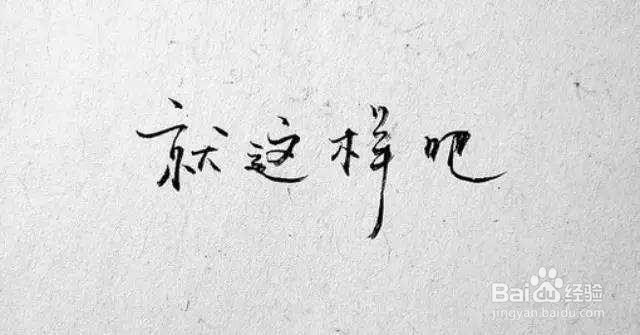 就这样吧
Baidu 经验
jingyan.baidu.com